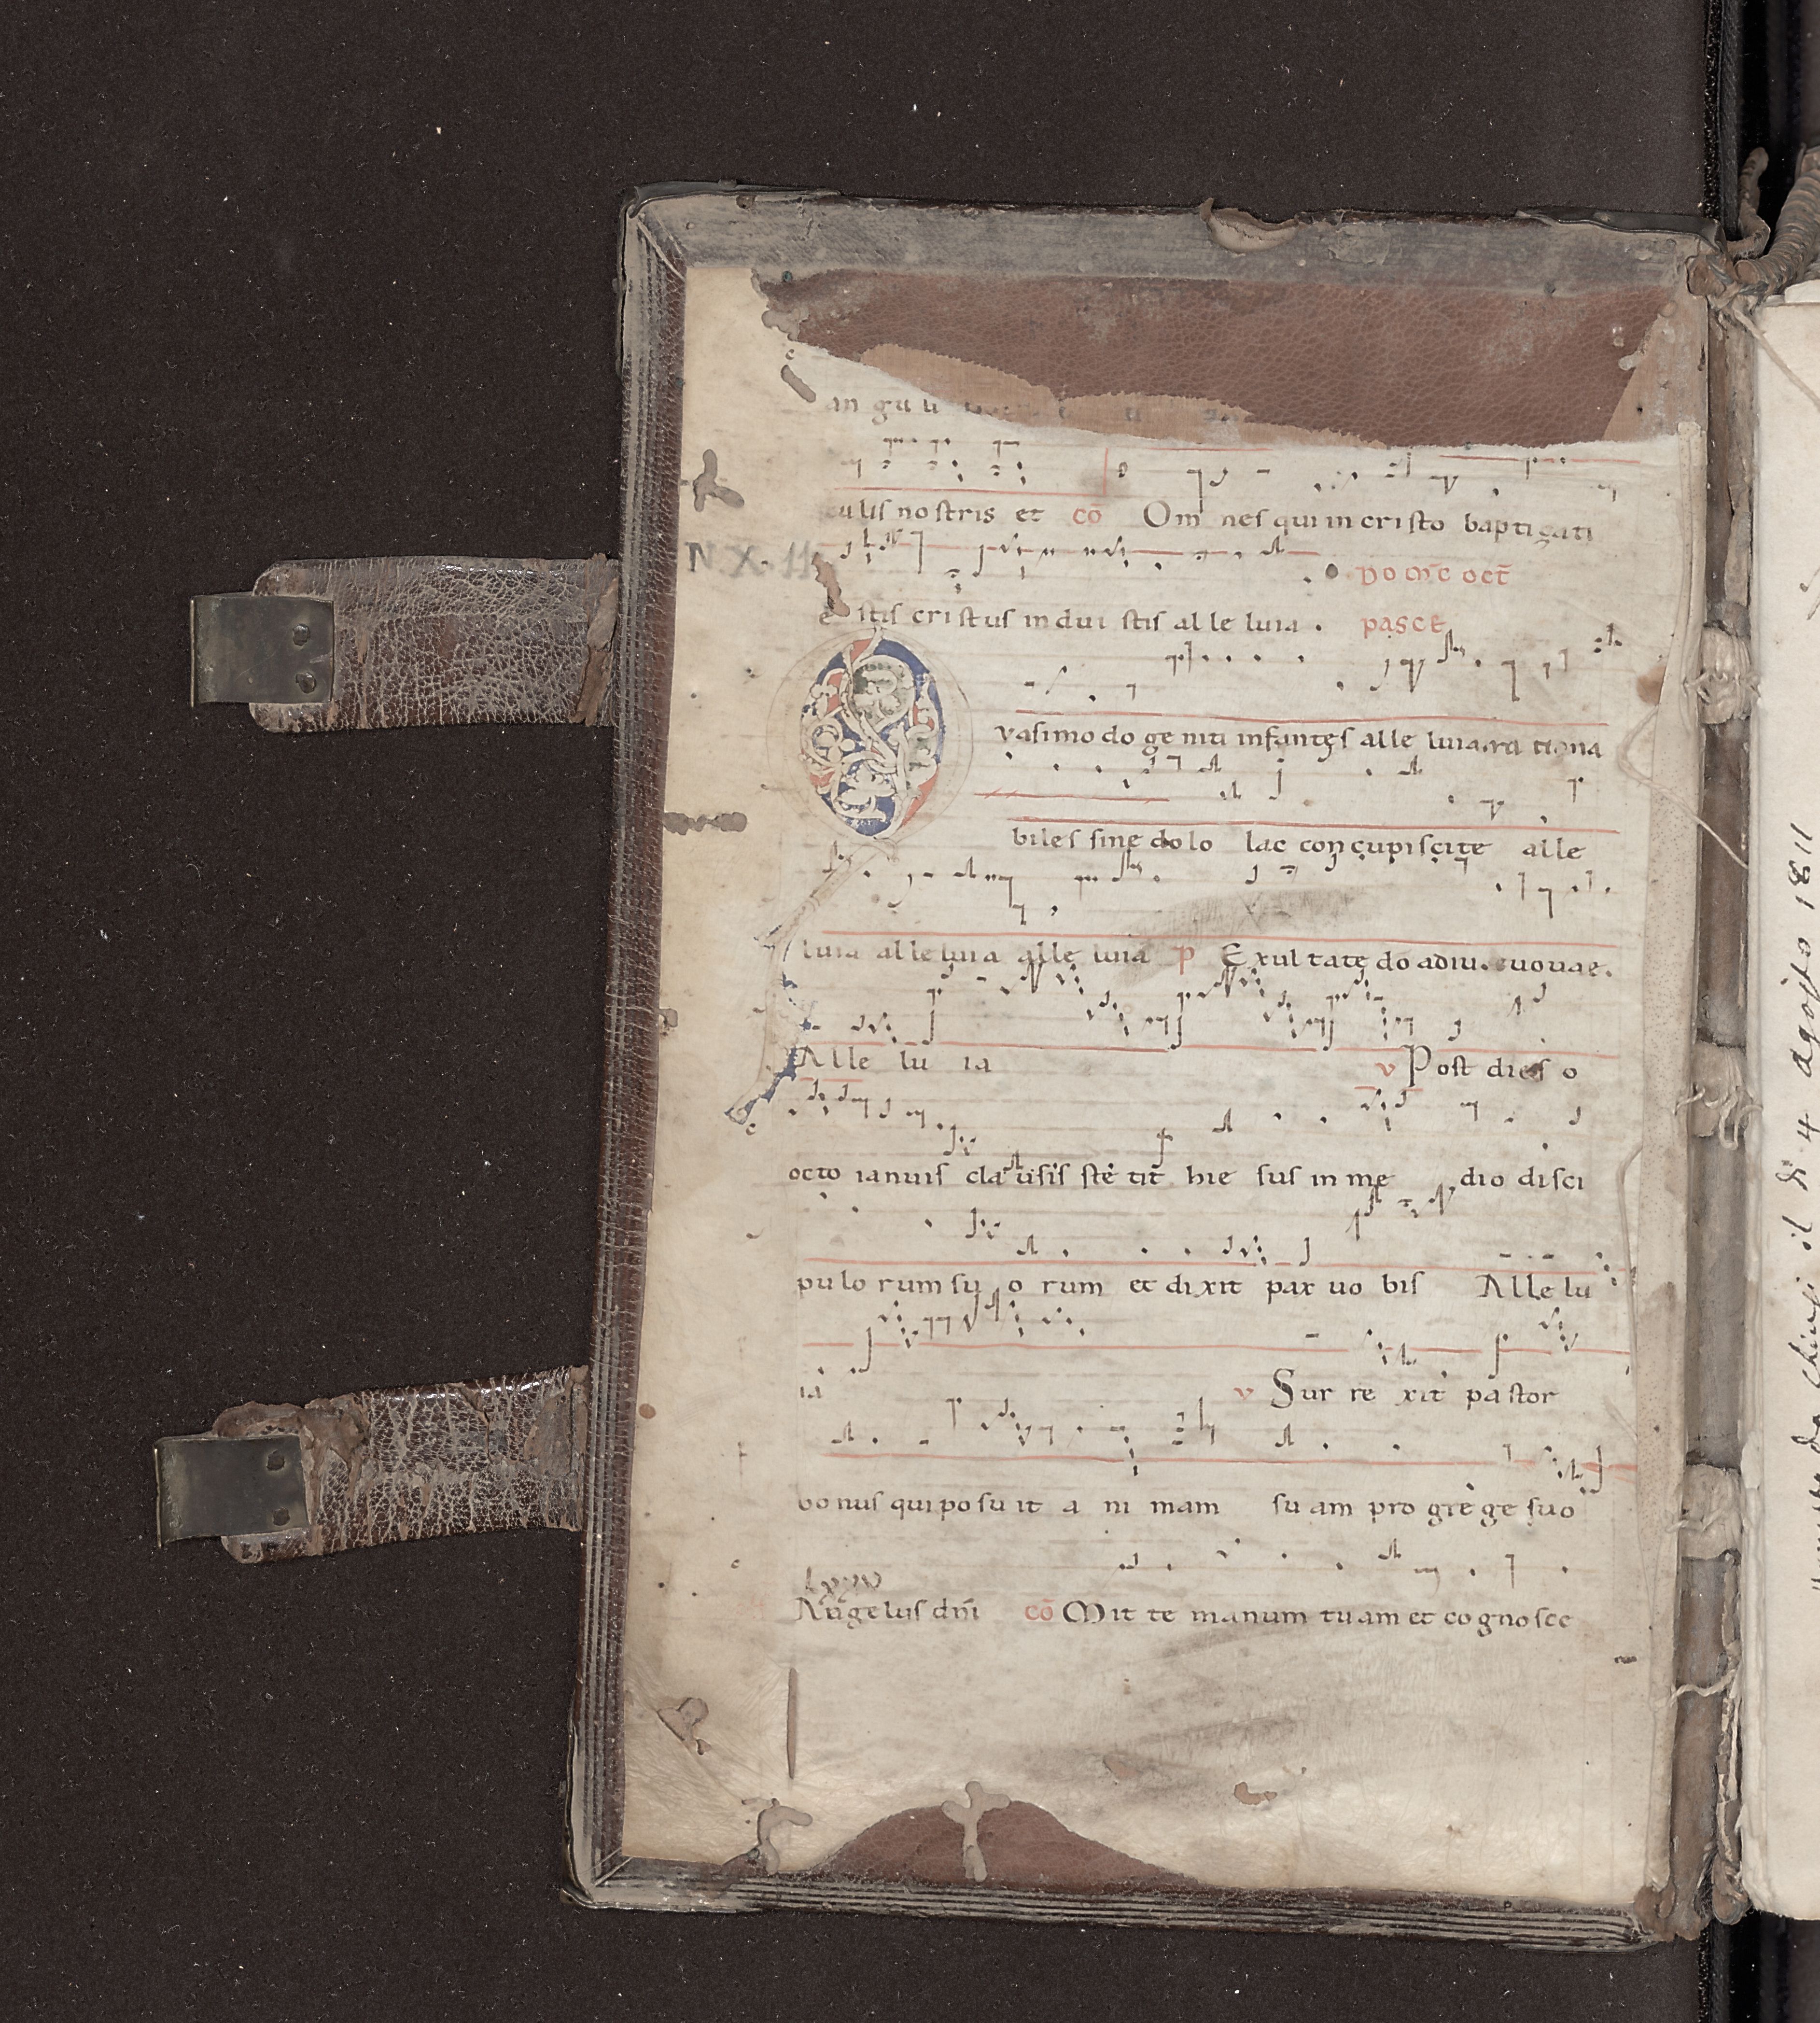 an gu li
culis nostris et cō Om nes qui in cristo baptizati
N. X. 11
e stis cristus in dui stis al le luia . DO MĒ OCT̄
PASCE
Vasimo do ge niti infantes alle luia. ra tiona
biles sine dolo lac concupiscite alle
luia al le luia alle luia p̄ Exul tate dō adiu. euouae.
Alle lu ia v Post dies o
octo ianuis cla usis ste tit hie sus in me dio disci
pu lo rum su o rum et dixit pax uo bis Alle lu
ia v Sur re xit pastor
bo nus qui po su it a ni mam su am pro gre ge suo
Angelus dn̄i cō Mit te manum tuam et cognosce
il di 4 agosto 1811